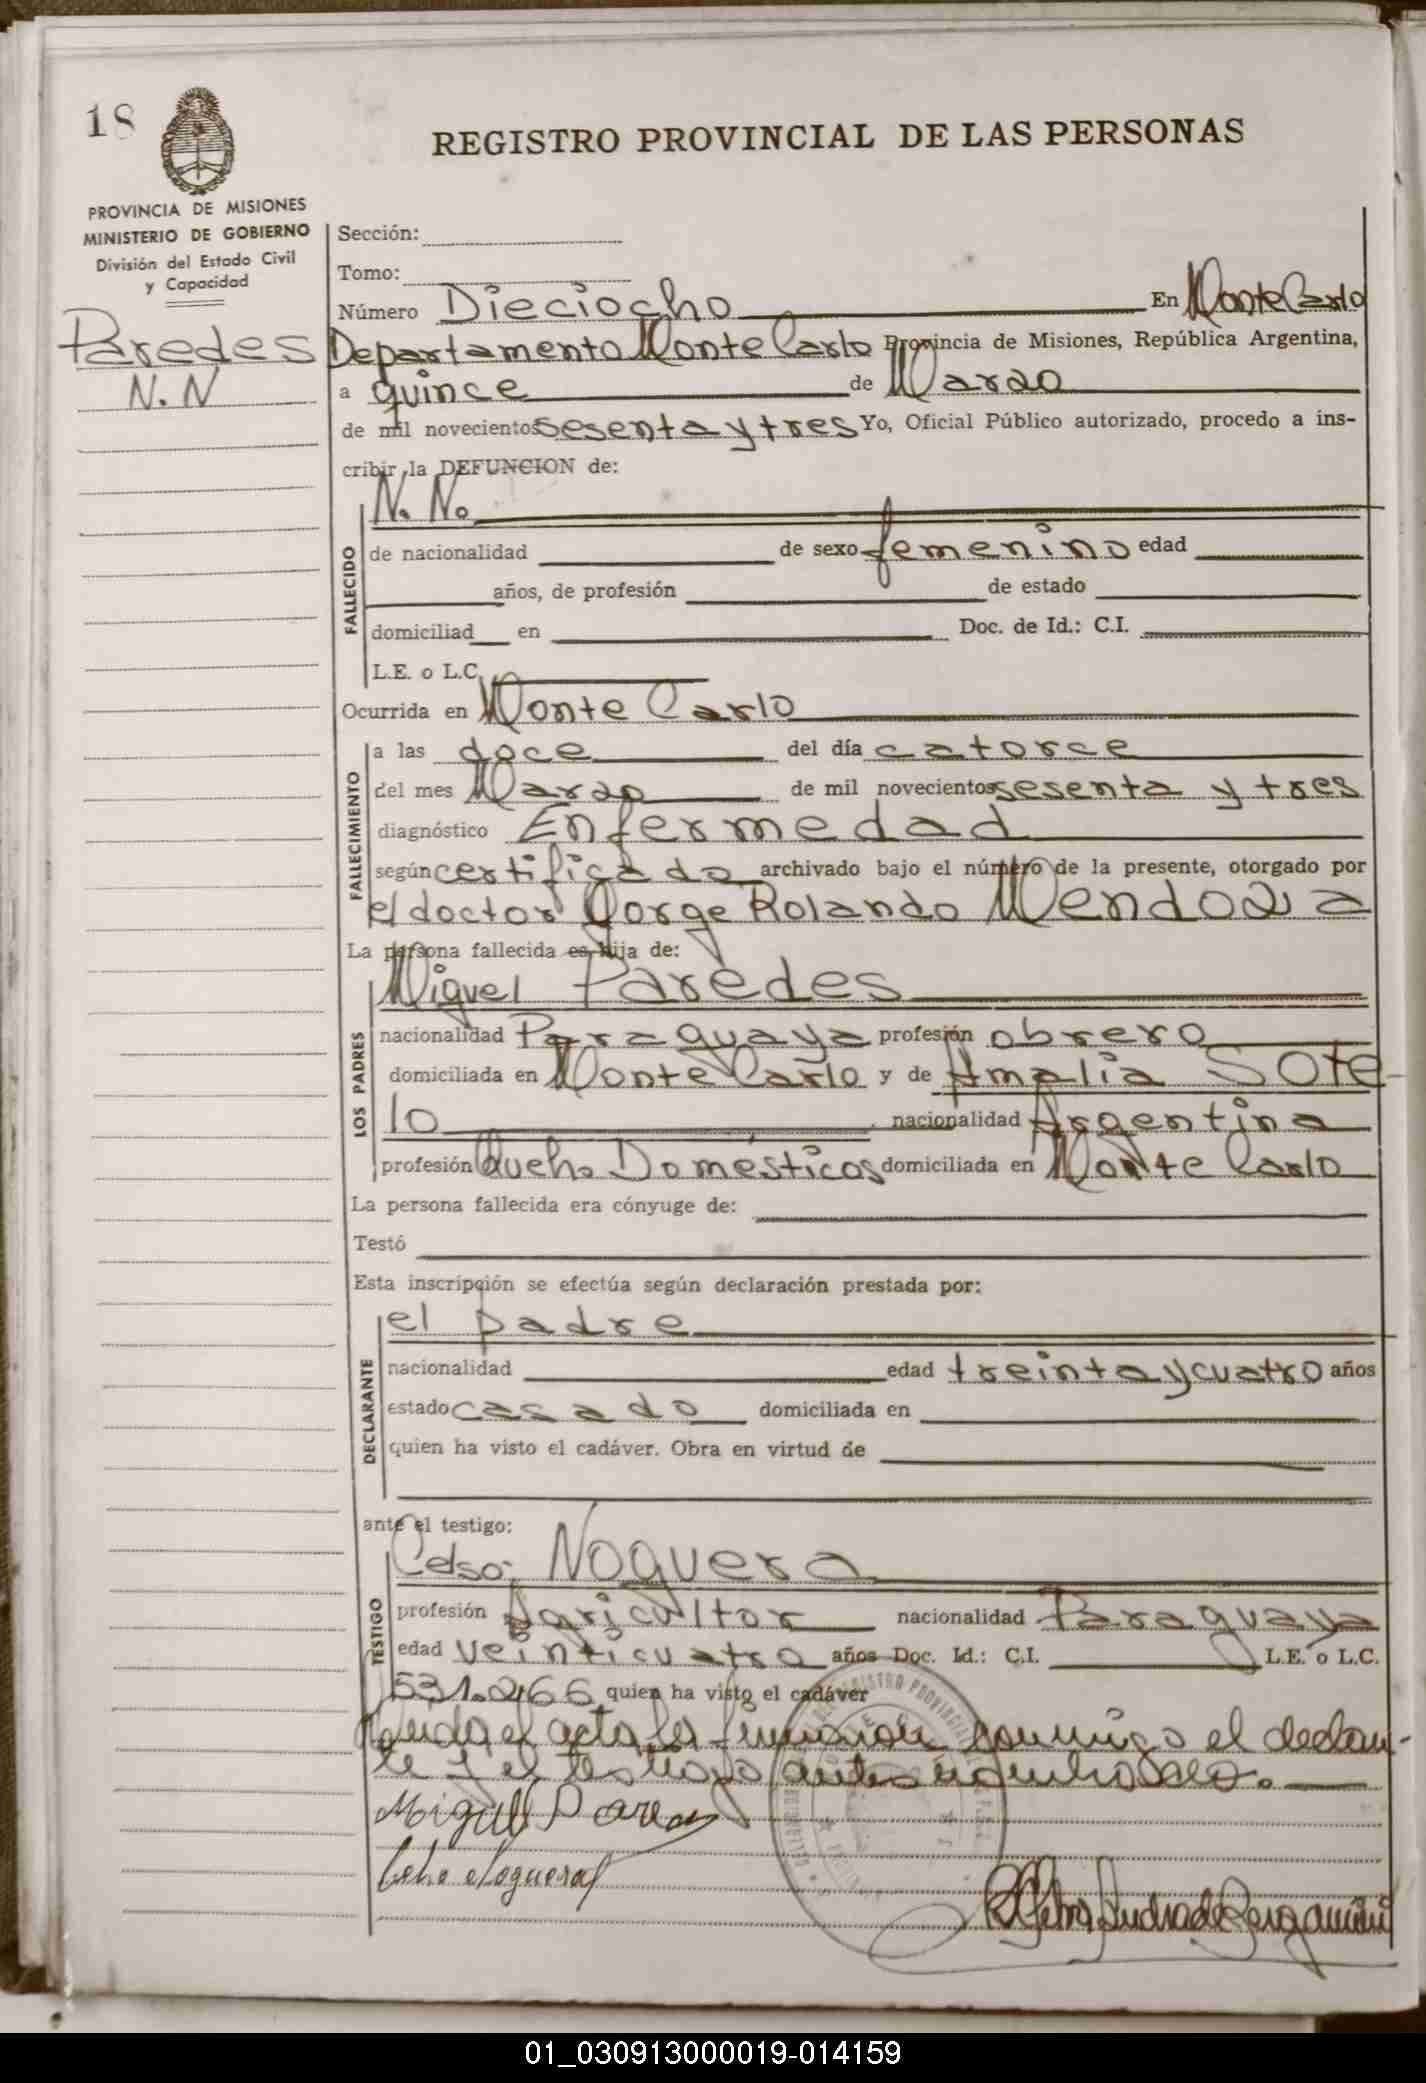 18
REGISTRO PROVINCIAL DE LAS PERSONAS
PROVINCIA DE MISIONES
MINISTERIO DE GOBIERNO
División del Estado Civil
y Capacidad
Paredes
N.N
Sección:
Tomo:
Número Dieciocho En Monte Carlo
Departamento Monte Carlo Provincia de Misiones, República Argentina,
a quince de Marzo
de mil novecientos sesenta y tres Yo, Oficial Público autorizado, procedo a ins-
cribir la DEFUNCION de:
N. No
FALLECIDO
de nacionalidad de sexo femenino edad
años, de profesión de estado
domiciliad en Doc. de Id.: C.I.
L.E. o L.C.
Ocurrida en Monte Carlo
FALLECIMIENTO
a las doce del día catorce
del mes Marzo de mil novecientos sesenta y tres
diagnóstico Enfermedad
según certificado archivado bajo el número de la presente, otorgado por
el doctor Jorge Rolando Mendoza
La persona fallecida es hija de:
LOS PADRES
Miguel Paredes
nacionalidad Paraguaya profesión obrero
domiciliada en Monte Carlo y de Amalia Sote-
lo nacionalidad Argentina
profesión Queha Domésticos domiciliada en Monte Carlo
La persona fallecida era cónyuge de:
Testó
Esta inscripción se efectúa según declaración prestada por:
DECLARANTE
el padre
nacionalidad edad treinta y cuatro años
estado casado domiciliada en
quien ha visto el cadáver. Obra en virtud de
ante el testigo:
TESTIGO
Celso Noguera
profesión Agricultor nacionalidad Paraguaya
edad veinticuatro años Doc. Id.: C.I. L.E. o L.C.
531.266 quien ha visto el cadáver
Leída el acta la firman conmigo el declaran-
te y el testigo antes nombrado.
Miguel Paredes
Celso Noguera